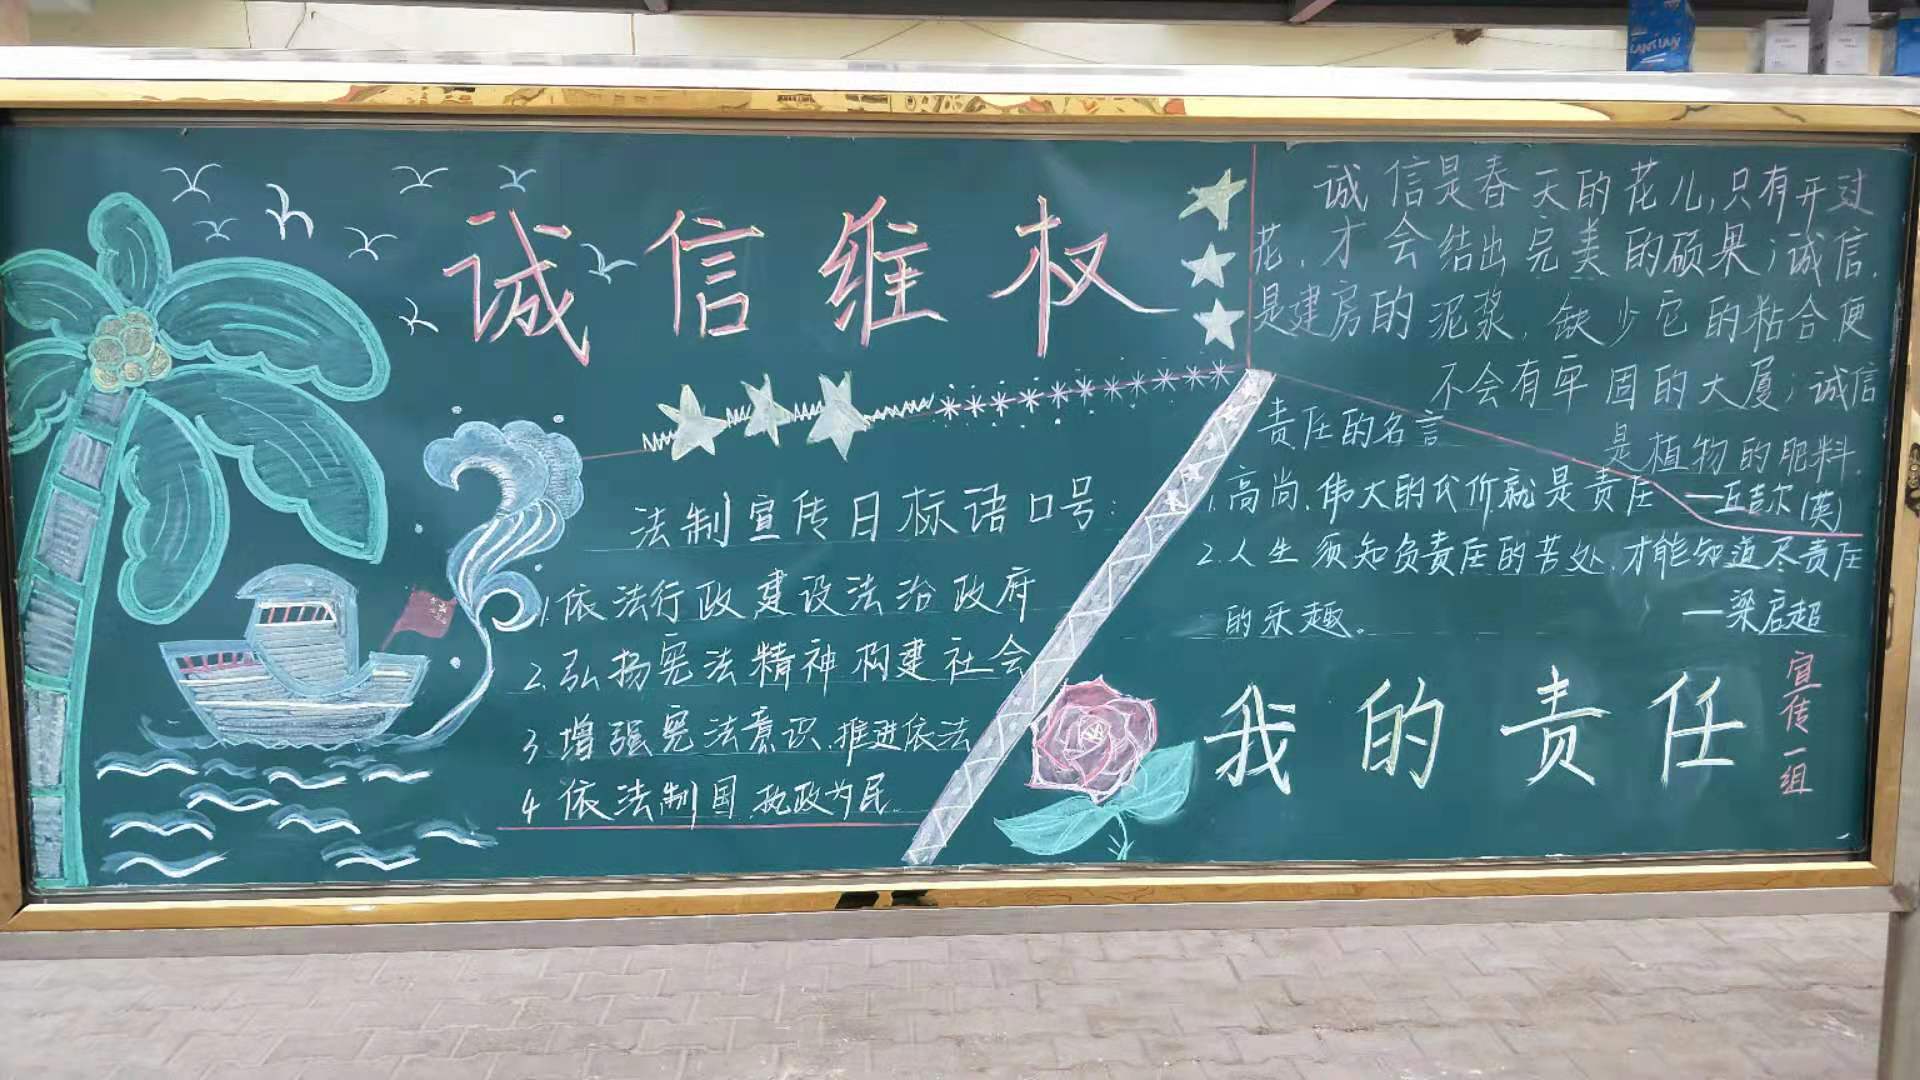 LANTIAN
诚信维权
法制宣传日标语口号:
1.依法行政建设法治政府
2.弘扬宪法精神构建社会
3.增强宪法意识.推进依法
4依法制国.执政为民.
诚信是春天的花儿,只有开过
花,才会结出完美的硕果;诚信,
是建房的泥浆,缺少它的粘合便
不会有牢固的大厦;诚信
是植物的肥料.
责任的名言
1.高尚,伟大的代价就是责任 —丘吉尔(英)
2.人生须知负责任的苦处,才能知道尽责任
的乐趣。 —梁启超
我的责任
宣传一组